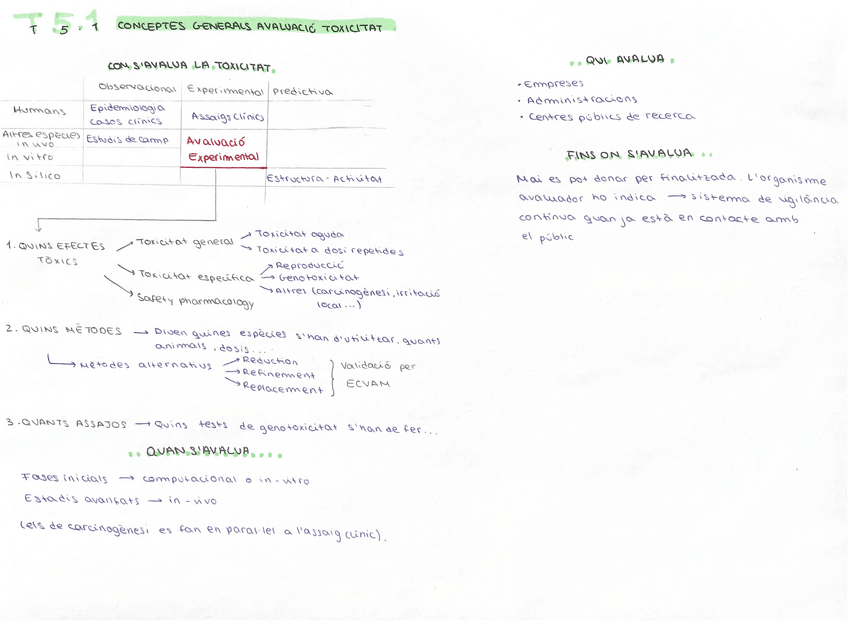 T 5.1
T 5.1 CONCEPTES GENERALS AVALUACIÓ TOXICITAT
COM S'AVALUA LA TOXICITAT
Observacional Experimental Predictiva
Humans Epidemiologia casos clínics Assaigs clínics
Altres espècies in vivo Estudis de camp Avaluació
In vitro Experimental
In Sílico Estructura-Activitat
1. QUINS EFECTES TÒXICS
Toxicitat general
Toxicitat aguda
Toxicitat a dosi repetides
Toxicitat específica
Reproducció
Genotoxicitat
Altres (carcinogènesi, irritació
local...)
Safety pharmacology
2. QUINS MÈTODES → Diven quines espècies s'han d'utilitzar, quants
animals, dosis...
Mètodes alternatius
Reduction
Refinement
Replacement
Validació per
ECVAM
3. QUANTS ASSAJOS → Quins tests de genotoxicitat s'han de fer...
QUAN S'AVALUA
Fases inicials → computacional o in-vitro
Estadis avançats → in-vivo
(els de carcinogènesi es fan en paral·lel a l'assaig clínic).
QUI AVALUA
• Empreses
• Administracions
• Centres públics de recerca
FINS ON S'AVALUA
Mai es pot donar per finalitzada. L'organisme
avaluador ho indica → sistema de vigilància
contínua quan ja està en contacte amb
el públic